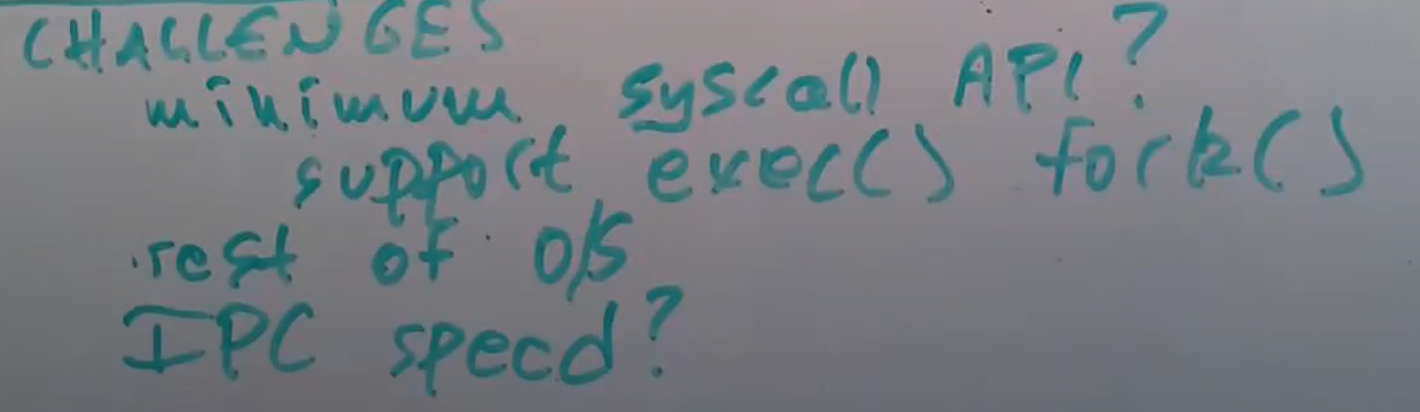 CHALLENGES
minimum syscall API?
support exec() fork()
rest of O/S
IPC speed?